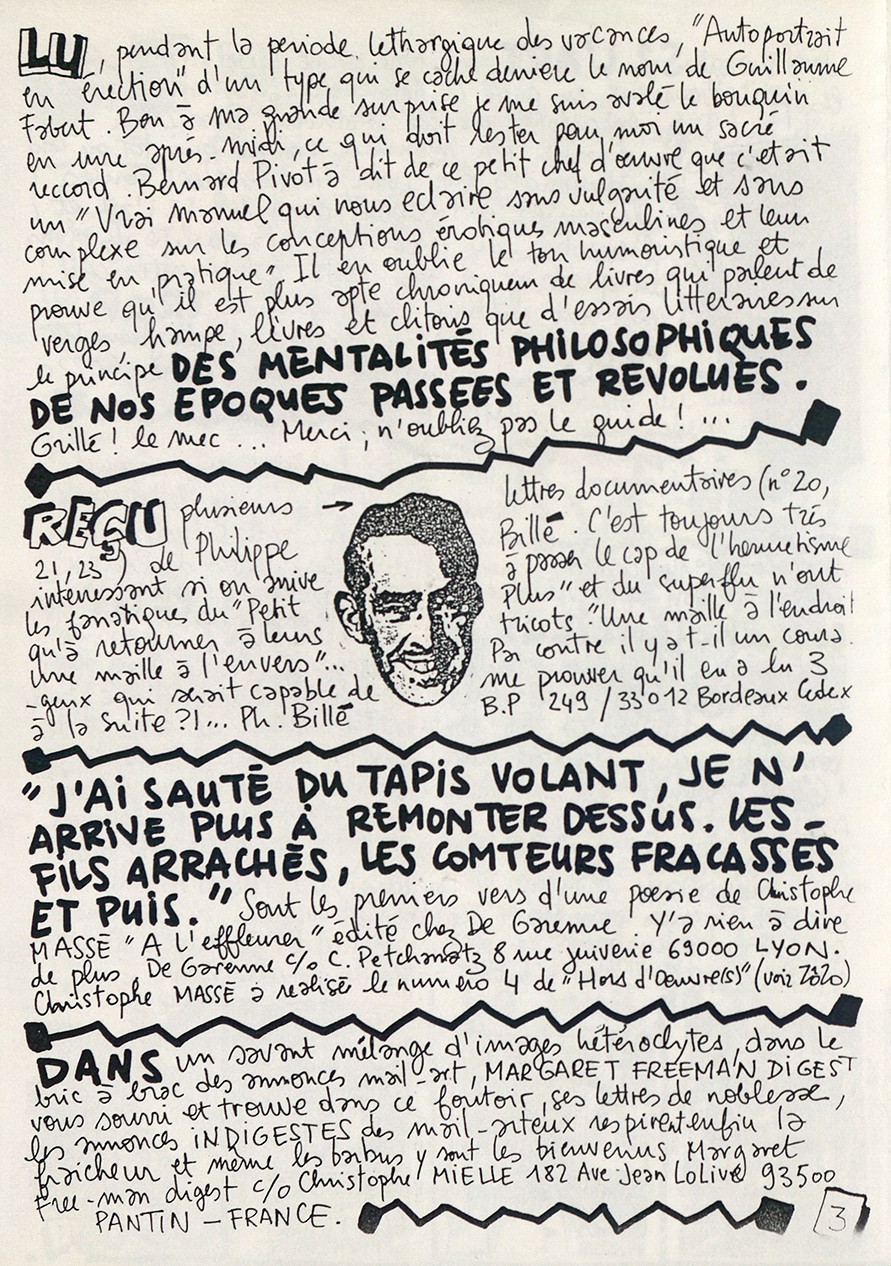 LU, pendant la periode lethargique des vacances, "Autoportrait
en érection" d'un type qui se cache derriere le nom de Guillaume
Fabert. Bon à ma grande surprise je me suis avalé le bouquin
en une après-midi, ce qui doit rester pour moi un sacré
reccord. Bernard Pivot à dit de ce petit chef d'œuvre que c'etait
un "Vrai manuel qui nous eclaire sans vulgarité et sans
complexe sur les conceptions érotiques masculines et leur
mise en pratique". Il en oublie le ton humoristique et
prouve qu'il est plus apte chroniqueur de livres qui parlent de
verges, hampe, livres et clitoris que d'essais litteraires sur
le principe DES MENTALITÉS PHILOSOPHIQUES
DE NOS EPOQUES PASSEES ET REVOLUES.
Grillé ! le mec ... Merci ; n'oubliez pas le guide ! ...
REÇU plusieurs → lettres documentaires (n° 20,
21, 23) de Philippe Billé. C'est toujours très
intéressant si on arrive à passer le cap de l'hermetisme
les fanatiques du "Petit Plus" et du superflu n'ont
qu'à retourner à leurs tricots "Une maille à l'endroit
Une maille à l'envers"... Par contre il y a t-il un coura-
-geux qui serait capable de me prouver qu'il en a lu 3
à la suite ?!... Ph. Billé B.P 249 / 33012 Bordeaux Cedex
"J'AI SAUTÉ DU TAPIS VOLANT, JE N'
ARRIVE PLUS À REMONTER DESSUS. LES
FILS ARRACHÉS, LES COMTEURS FRACASSÉS
ET PUIS." Sont les premiers vers d'une poesie de Christophe
MASSÉ "A L'effleurer" édité chez De Garenne. Y'a rien à dire
de plus. De Garenne c/o C. Petchanatz 8 rue juiverie 69000 LYON.
Christophe MASSÉ à realisé le numéro 4 de "Hors d'Oeuvre(s)" (voir Zôzo)
DANS un savant mélange d'images hétéroclytes, dans le
bric à brac des annonces mail-art, MARGARET FREEMAN DIGEST
vous sourri et trouve dans ce foutoir, ses lettres de noblesse,
les annonces INDIGESTES des mail-arteux respirent enfin la
fraicheur et même les barbus y sont les bienvenus Margaret
Free-man digest c/o Christophe MIELLE 182 Ave Jean LoLive 93500
PANTIN - FRANCE.
3